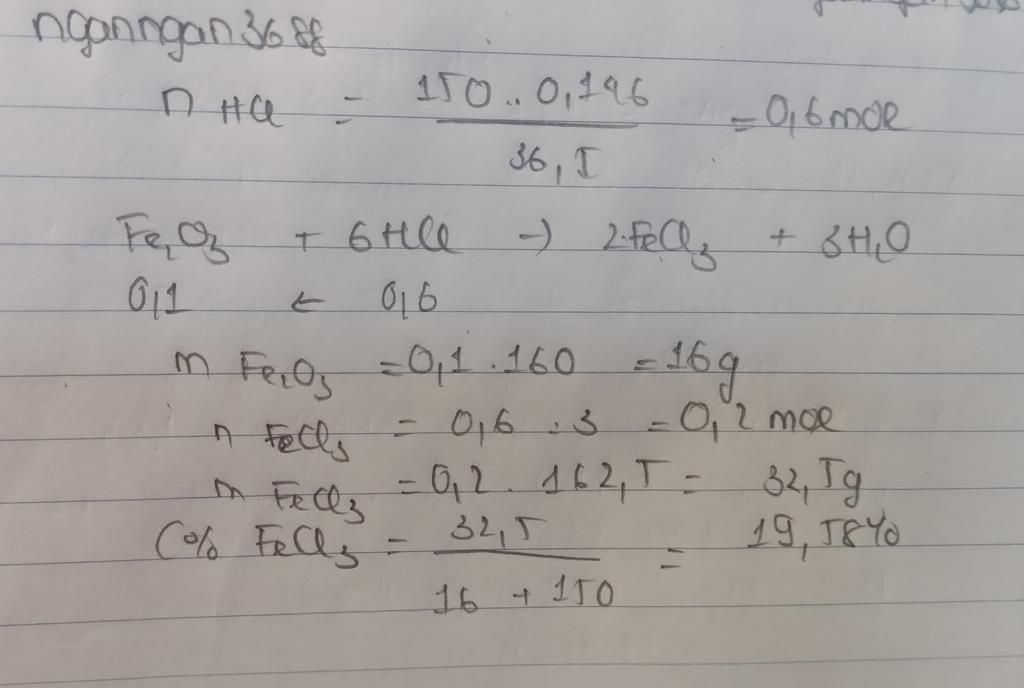 nganngan3688
n HCl = 150 . 0,146 / 36,5 = 0,6 mol
Fe2O3 + 6HCl → 2FeCl3 + 3H2O
0,1 ← 0,6
m Fe2O3 = 0,1 . 160 = 16g
n FeCl3 = 0,6 : 3 = 0,2 mol
m FeCl3 = 0,2 . 162,5 = 32,5g
C% FeCl3 = 32,5 / 16 + 150 = 19,58%